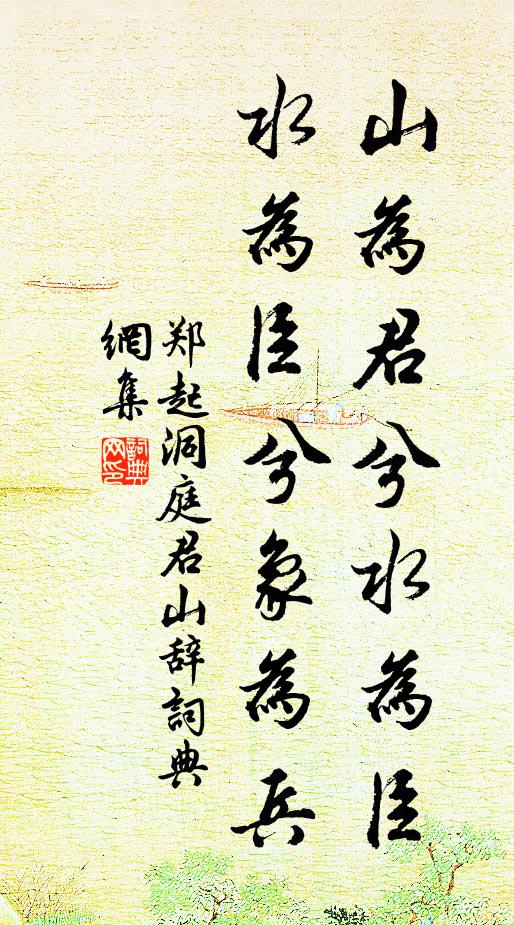 山為君兮水為臣
水為臣兮象為兵
郑起洞庭君山辞詞典
網集
詞典
网印